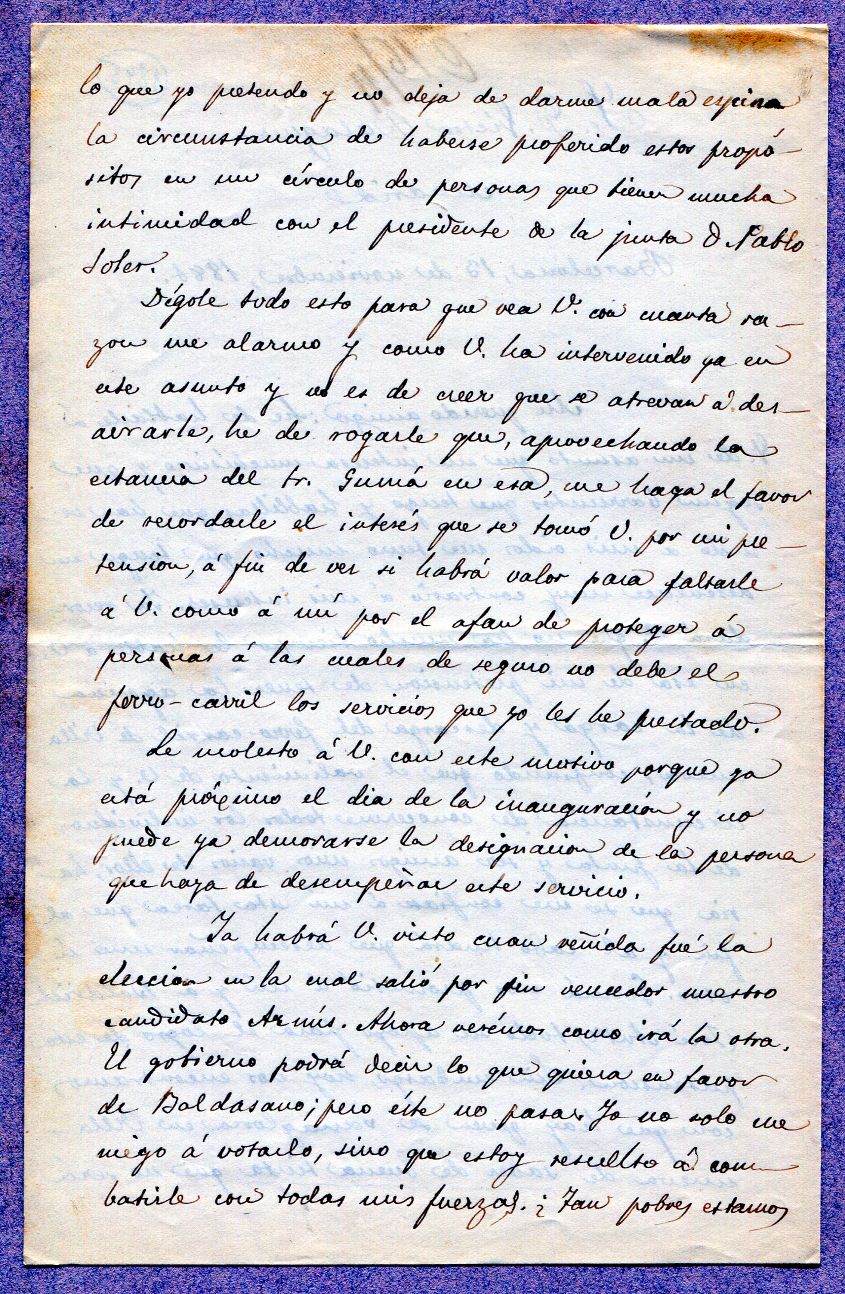 lo que yo pretendo y no deja de darme mala espina
la circumstancia de haberse proferido estos propó-
sitos en un círculo de personas que tienen mucha
intimidad con el presidente de la junta D Pablo
Soler.
Dígole todo esto para que vea V. con cuanta ra-
zon me alarmo y como V. ha intervenido ya en
este asunto y no es de creer que se atrevan á des-
airarle, he de rogarle que, aprovechando la
estancia del Sr. Gumá en esa, me haga el favor
de recordarle el interés que se tomó V. por mi pre-
tension, á fin de ver si habrá valor para faltarle
á V. como á mí por el afan de proteger á
personas á las cuales de seguro no debe el
ferro-carril los servicios que yo les he prestado.
Le molesto á V. con este motivo porque ya
está próximo el dia de la inauguración y no
puede ya demorarse la designacion de la persona
que haya de desempeñar este servicio.
Ya habrá V. visto cuan reñida fué la
eleccion en la cual salió por fin vencedor nuestro
candidato Arnús. Ahora verémos como irá la otra.
El gobierno podrá decir lo que quiera en favor
de Baldasano; pero éste no pasa. Yo no solo me
niego á votarlo, sino que estoy resuelto á com-
batirle con todas mis fuerzas. ¿Tan pobres estamos